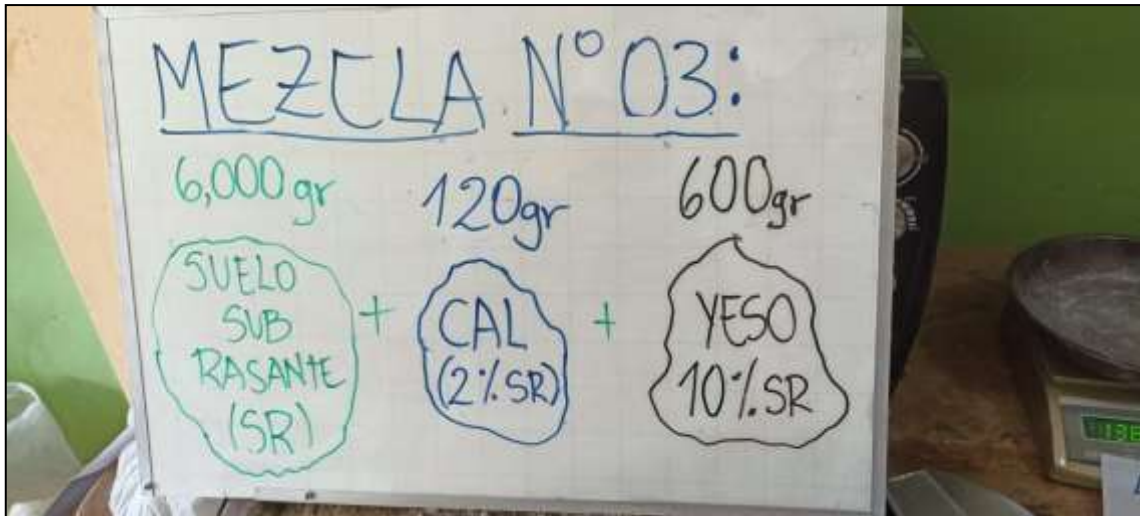 MEZCLA N° 03:
6,000 gr
120gr
600gr
SUELO
SUB
RASANTE
(SR)
+
CAL
(2%SR)
+
YESO
10%SR